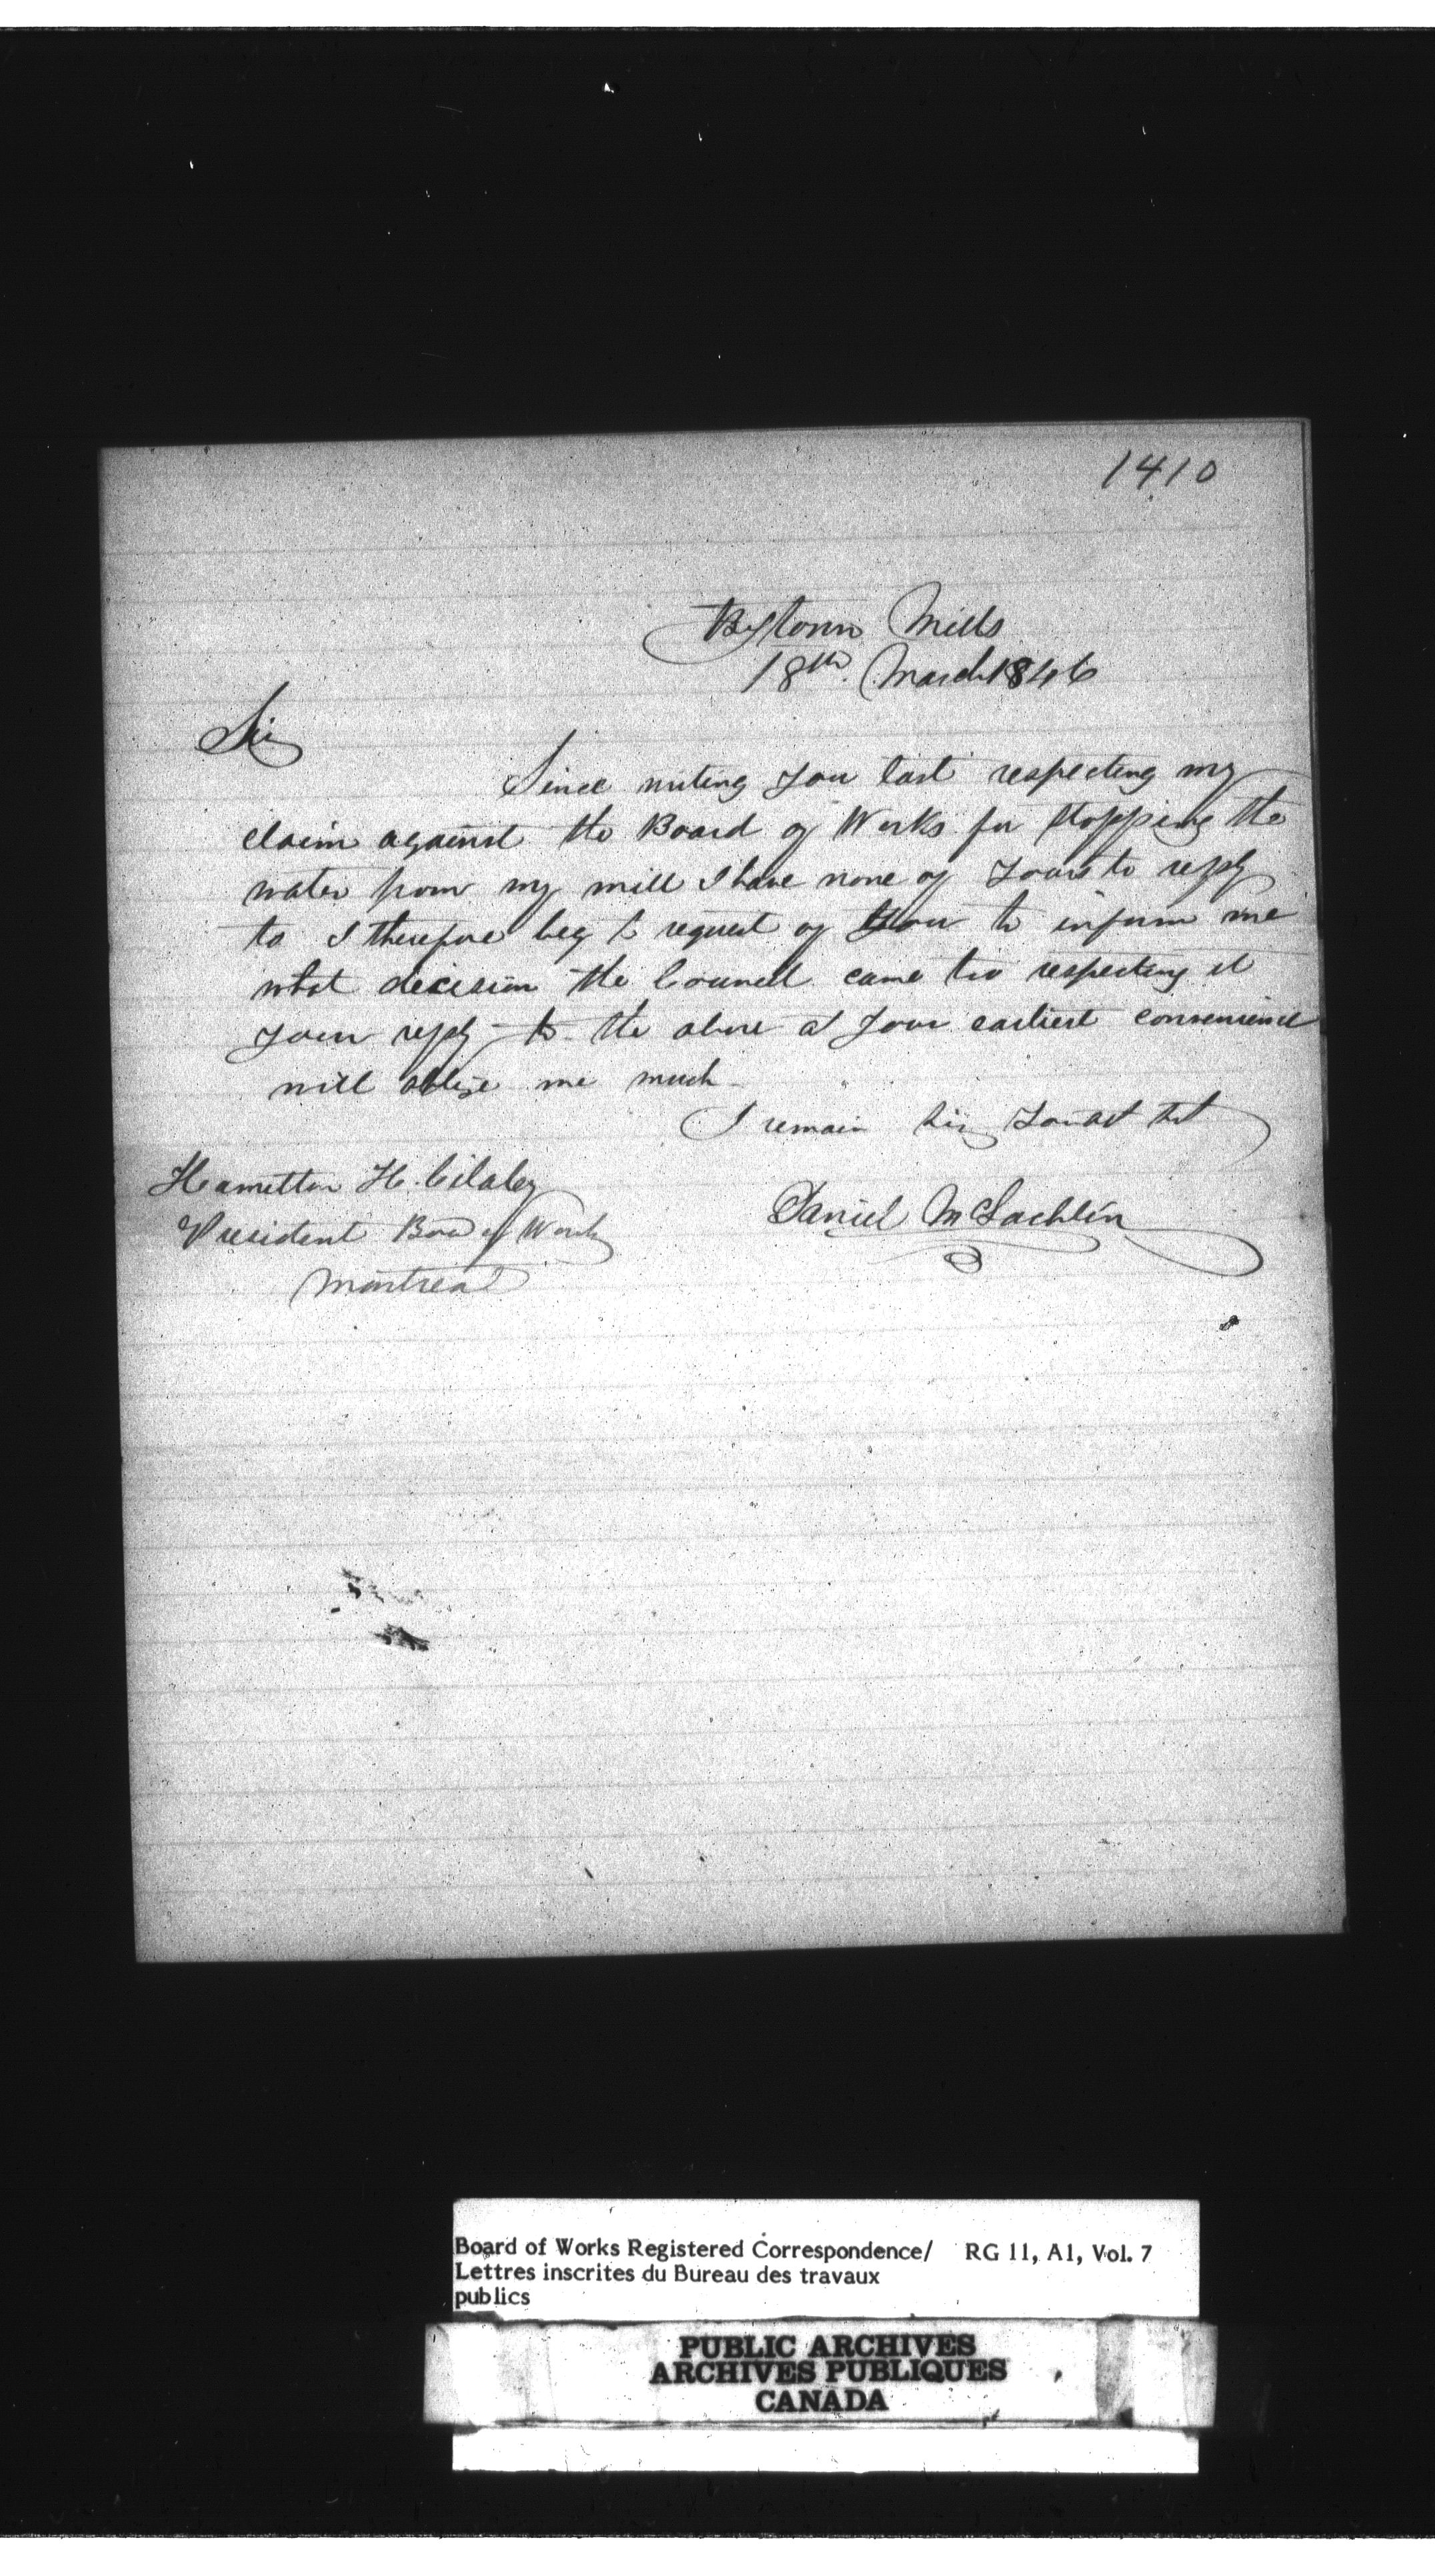 1410
Bytown Mills
18th. March 1846
Sir
Since writing you last respecting my
claim against the Board of Works for stopping the
water from my mill I have none of yours to reply
to I therefore beg to request of you to inform me
what decision the Council came too respecting it
your reply to the above at your earliest convenience
will oblige me much
I remain Sir
Hamilton H. Cilaley
President Board of Works
Montreal
Daniel McLachlin
Board of Works Registered Correspondence/ RG 11, A1, Vol. 7
Lettres inscrites du Bureau des travaux
publics
PUBLIC ARCHIVES
ARCHIVES PUBLIQUES
CANADA